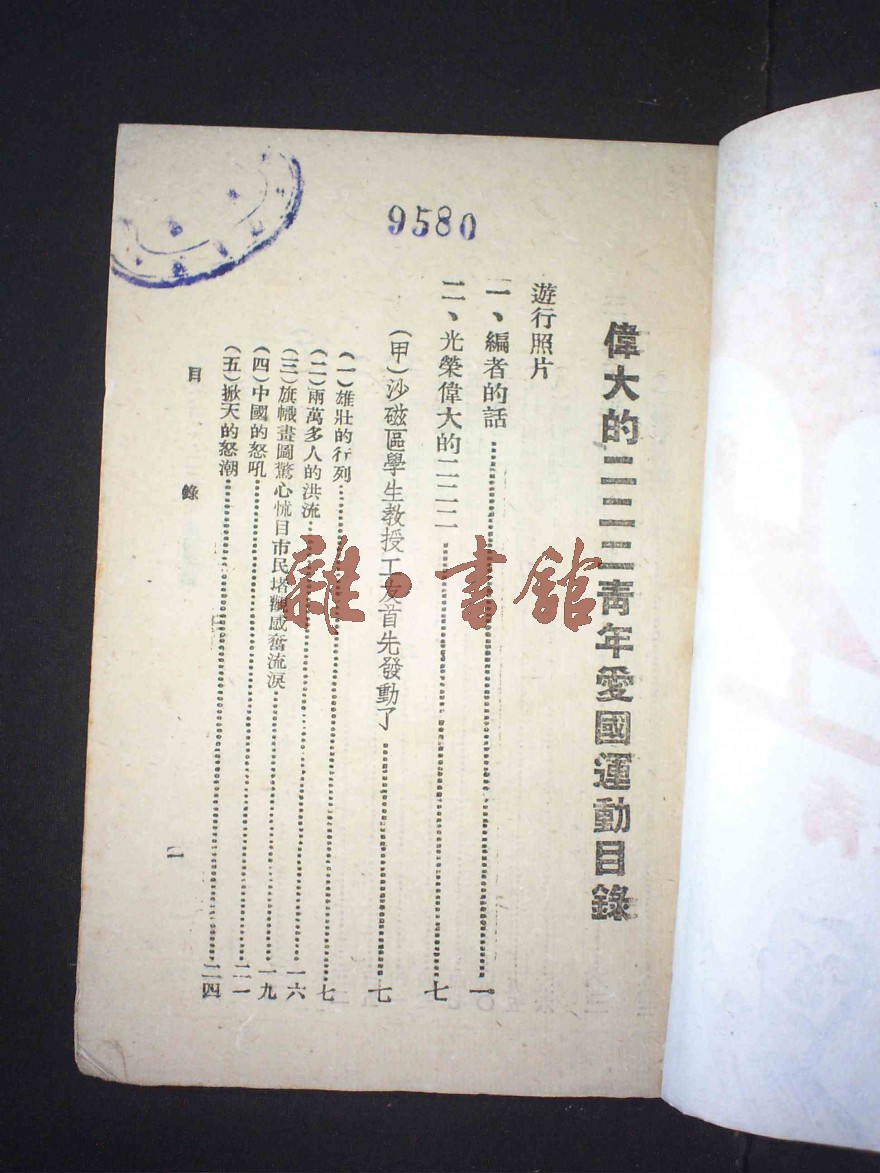 9580
偉大的二二二青年愛國運動目錄
遊行照片
一、編者的話……………一
二、光榮偉大的二二二……………七
(甲)沙磁區學生教授工友首先發動了……………七
(一)雄壯的行列……………七
(二)兩萬多人的洪流……………一六
(三)旗幟畫圖驚心怵目市民堵觀感奮流淚……………一九
(四)中國的怒吼……………二一
(五)掀天的怒潮……………二四
目 錄
一
雜·書館